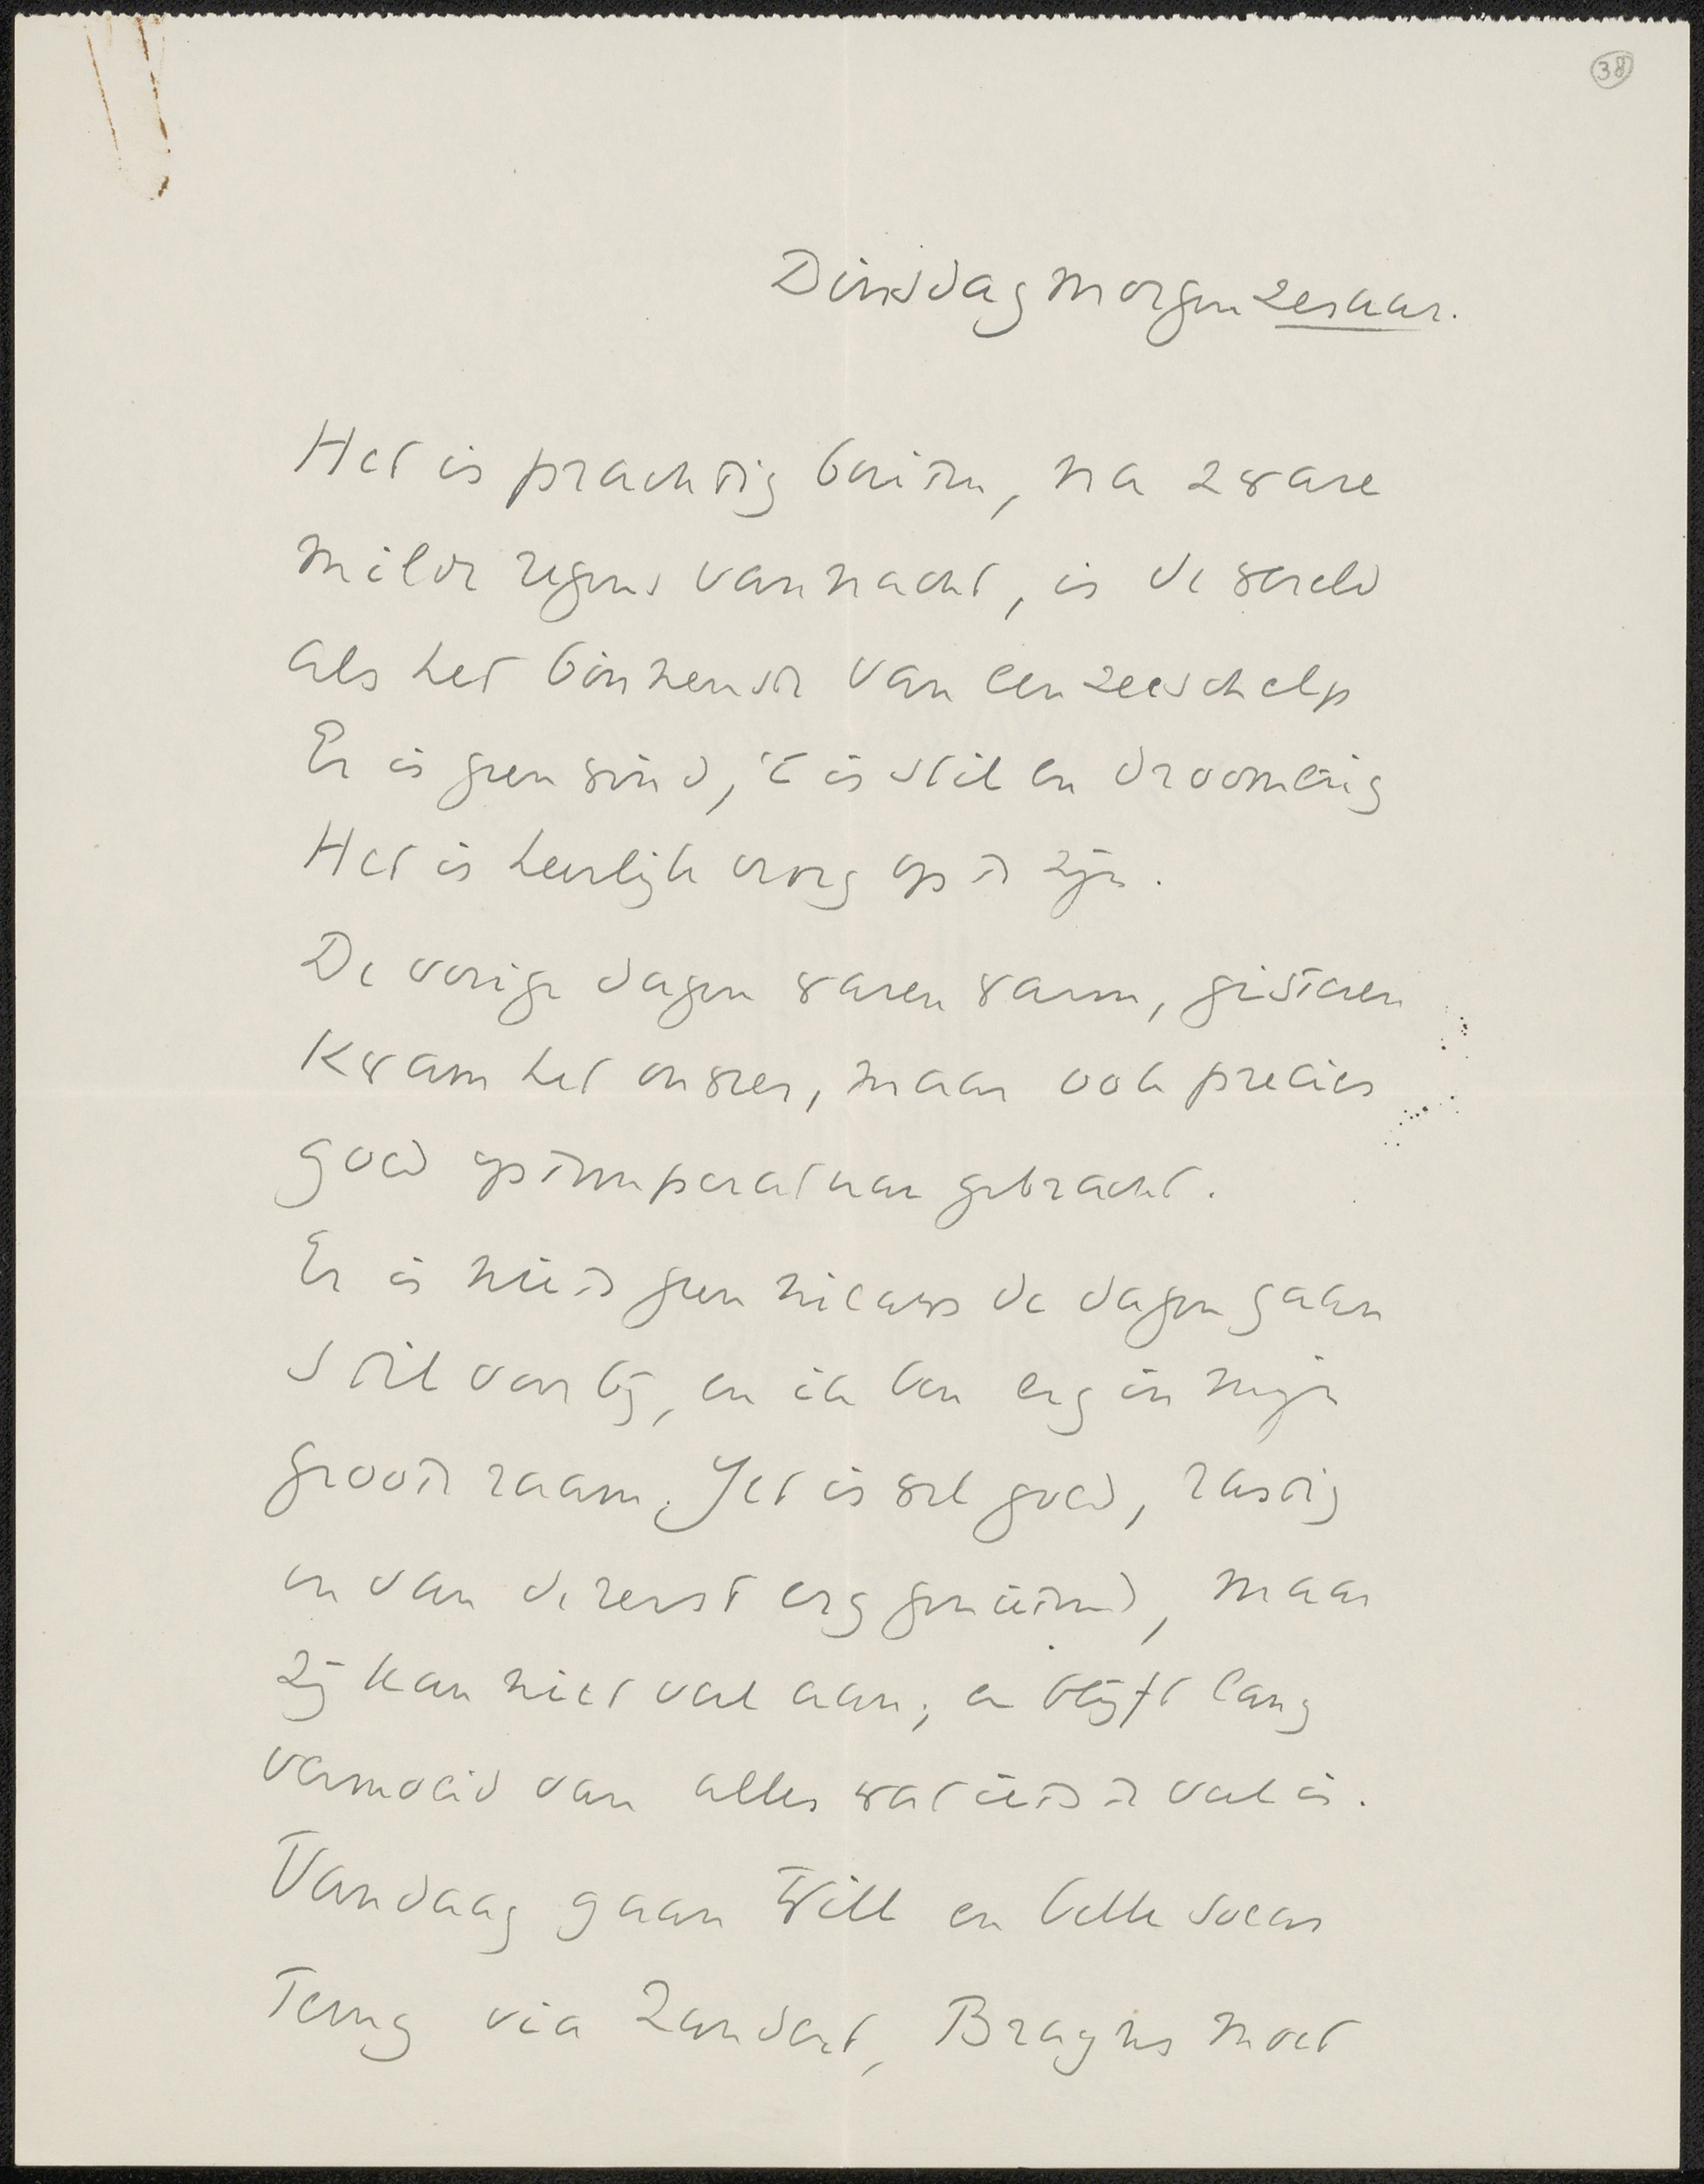 38
Dinsdag morgen zes uur.
Het is prachtig buiten, na zware
milde regens vannacht, is de wereld
als het binnenste van een zeeschelp
Er is geen wind, 't is stil en droomerig
Het is heerlijk vroeg op te zijn.
De vorige dagen waren warm, gisteren
kwam het onweer, maar ook precies
goed op temperatuur gebracht.
Er is niets geen nieuws de dagen gaan
stil voorbij, en ik ben erg in mijn
groote raam. Jet is wel goed, rustig
en van de rest erg genietend, maar
zij kan niet veel aan; en blijft lang
vermoeid van alles wat iets te veel is.
Vandaag gaan Will en weer
terug via Zandert, moet